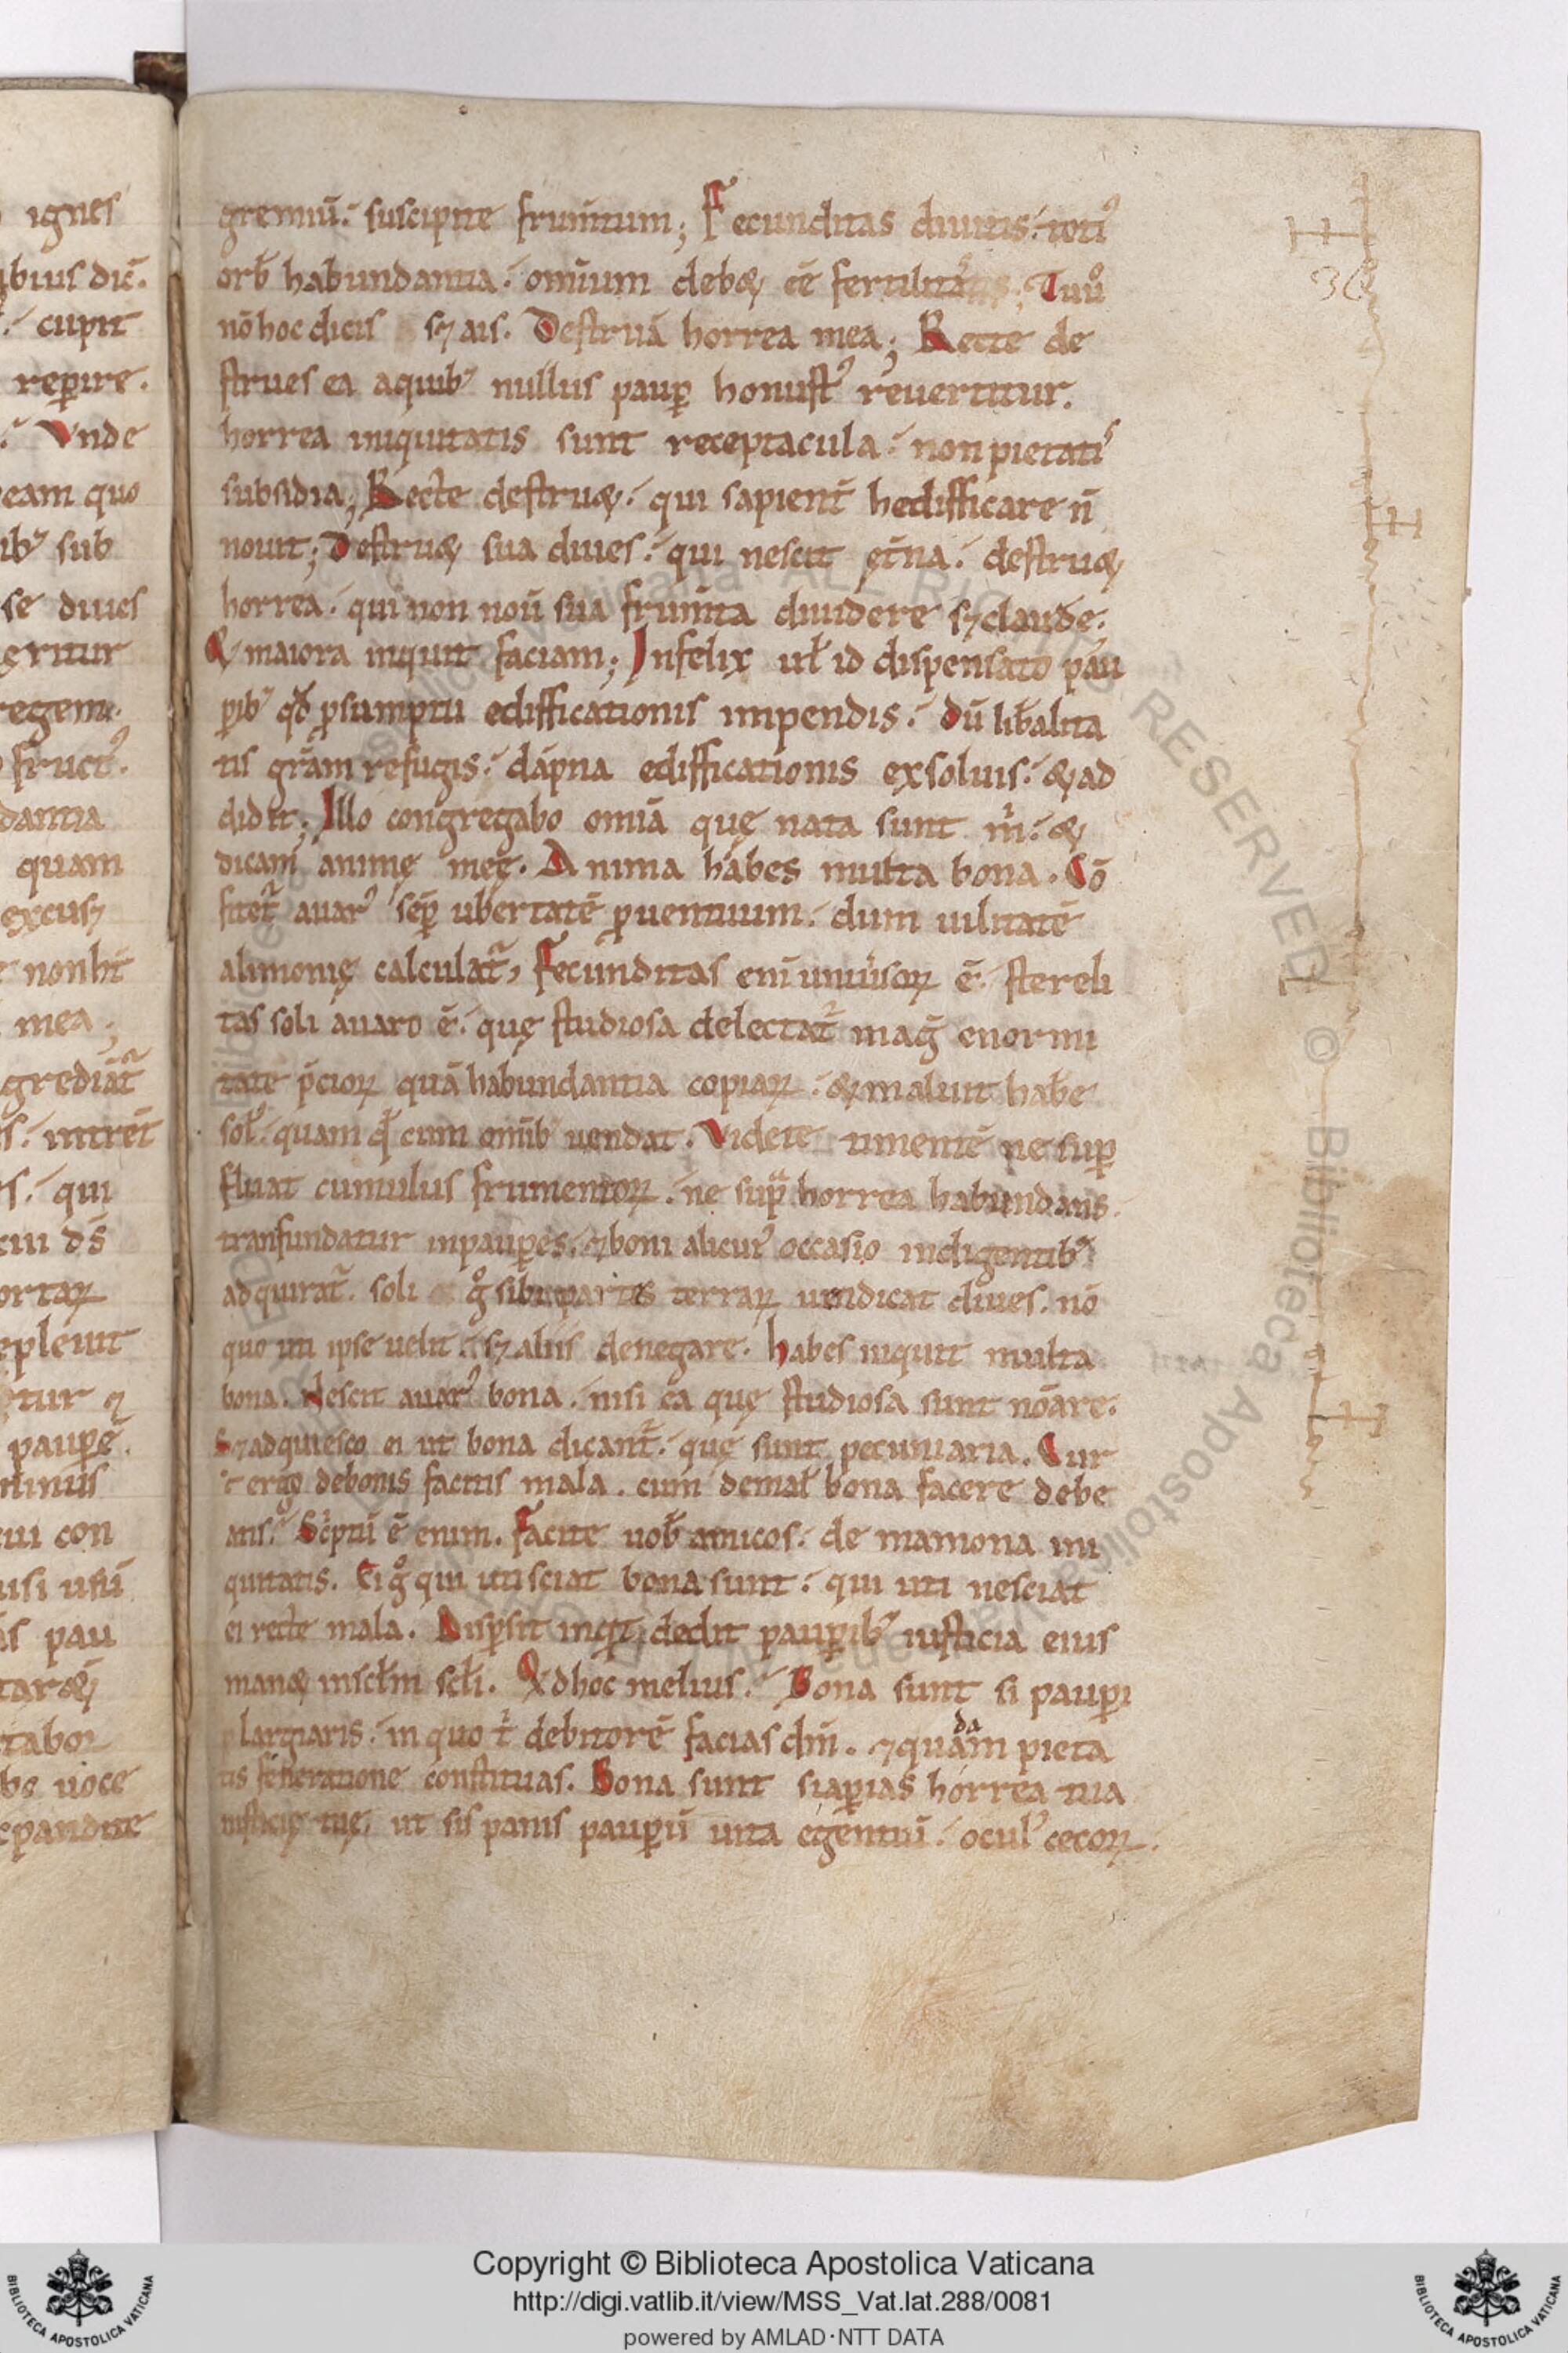 ignes
bius dic̄.
cupit
reꝑire.
Vnde
eam quo
ibꝰ sub
se diues
eritur
regem.
fructꝰ.
dantia
quam
excusꝫ
nonht̄
mea;
grediat᷑
intret̄
qui
ciu ds̄
ortaꝝ
epleuit
tur ⁊
pauꝑe.
minus
cui con
usi usū
as pau
tabor
be uoce
epandite
gremiū. suscipite frum̄tum; Fecunditas diuitis. totiꝰ
orb̄ habundantia. omīum deb& ēē fertilitatis; Tuu͛o
nō hoc dicis sꝫ ais. Destruā horrea mea; Recte de
strues ea aquibꝰ nullus pauꝑ honustꝰ reuertitur.
horrea iniquitatis sunt receptacula. non pietatis
subsidia; Recte destru&. qui sapient̄ hedifficare n̄
nouit; Destru& sua diues. qui nescit et̄na. destru&
horrea. qui non nou̅ sua frum̄ta diuidere sꝫ claude;
& maiora inquit faciam; Infelix ul̄ id dispensato pau
ꝑibꝰ qd̄ p̄sumptu edifficationis impendis. Dū lib̄alita
tis grām refugis. dāpna edifficationis exsoluis. & ad
didit; Illo congregabo omīa quę nata sunt m̄. &
dicam animę meę. Anima habes multa bona. Cō
fitet᷑ auarꝰ seꝑ ubertatē ꝓuentuum. dum uilitatē
alimonię calculat᷑; Fecunditas eni uniu̅soꝝ ē. stereli
tas soli auaro ē. quę studiosa delectat᷑ mag̅ enormi
tate p̄cioꝝ quā habundantia copiaꝝ. & maluit hab̄e
sol̄. quam q̄ cum omībꝰ uendat. Videte timentē ne suꝑ
fluat cumulus frumentoꝝ. ne sup̄ horrea habundans.
transfundatur inpauꝑes. ⁊ boni alicuiꝰ occasio indigentibꝰ
adquirat᷑. soli gͦ sibi partis terraꝝ uendicat diues. nō
quo uti ipse uelit. sꝫ aliis denegare. habes inquit multa
bona. Nescit auarꝰ bona. nisi ea quę studiosa sunt noāre.
Sꝫ adquiesco ei ut bona dicant᷑. quę sunt pecuniaria. Cur
ergo debonis facitis mala. cum demal̄ bona facere debe
atis. Sc̄ptū ē enim. Facite uob̄ amicos. de mamona ini
quitatis. Ei gͦ qui uti sciat bona sunt. qui uti nesciat
ei recte mala. Disꝑsit inq̄t dedit pauꝑibꝰ iusticia eius
man& inscl̄m scl̄i. Qd hoc melius. Bona sunt si pauꝑi
largiaris. in quo t̄ debitorē facias dm̄. ⁊ quadam pieta
tis feneratione constituas. Bona sunt si aꝑias horrea tua
iusticię tuę. ut sis panis pauꝑū uita egentiū. oculꝰ cecoꝝ.
36
Copyright © Biblioteca Apostolica Vaticana
http://digi.vatlib.it/view/MSS_Vat.lat.288/0081
powered by AMLAD·NTT DATA
BIBLIOTECA APOSTOLICA VATICANA
BIBLIOTECA APOSTOLICA VATICANA